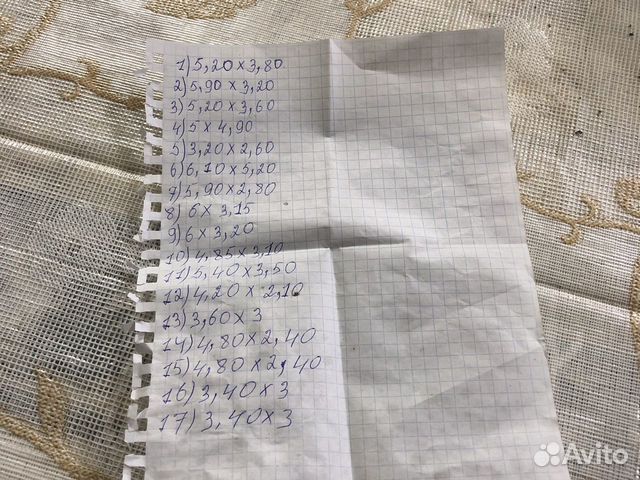 1) 5,20 x 3,80
2) 5,90 x 3,20
3) 5,20 x 3,60
4) 5 x 4,90
5) 3,20 x 2,60
6) 6,10 x 5,20
7) 5,90 x 2,80
8) 6 x 3,15
9) 6 x 3,20
10) 4,85 x 3,10
11) 5,40 x 3,50
12) 4,20 x 2,10
13) 3,60 x 3
14) 4,80 x 2,40
15) 4,80 x 2,40
16) 3,40 x 3
17) 3,40 x 3
Avito